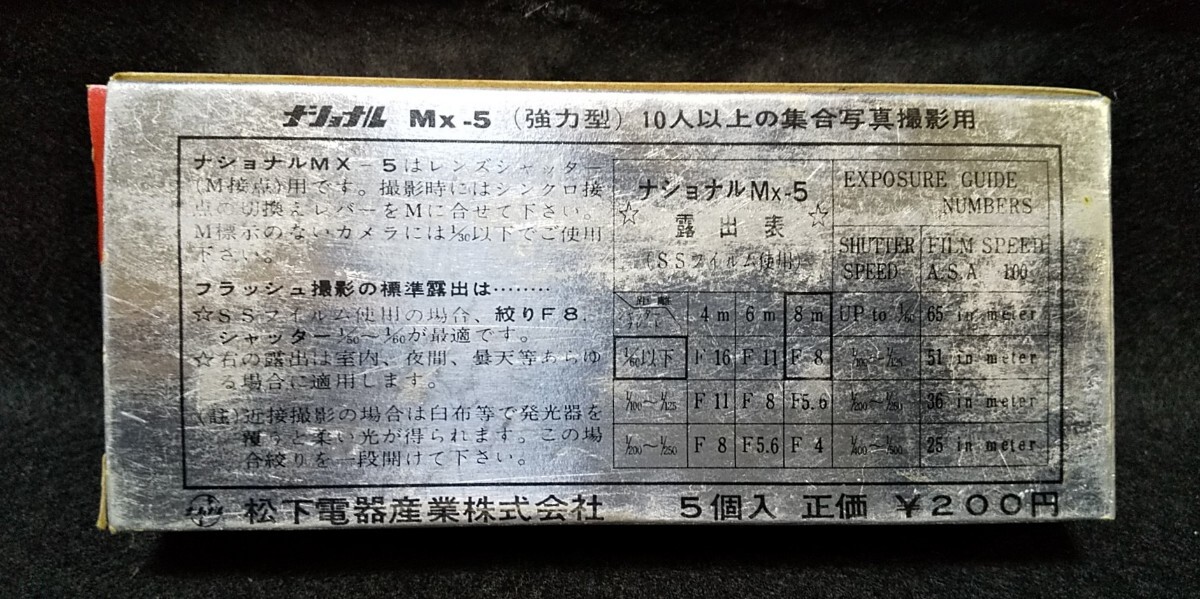 ナショナル Mx-5 (強力型) 10人以上の集合写真撮影用
ナショナルMX-5はレンズシャッター
(M接点)用です。撮影時にはシンクロ接
点の切換えレバーをMに合せて下さい。
M標示のないカメラには1/30以下でご使用
下さい。
フラッシュ撮影の標準露出は………
☆SSフイルム使用の場合、絞りF8、
シャッター1/50〜1/60が最適です。
☆右の露出は室内、夜間、曇天等あらゆ
る場合に適用します。
(註)近接撮影の場合は白布等で発光器を
覆うと柔い光が得られます。この場
合絞りを一段開けて下さい。
ナショナルMx-5
☆ 露出表 ☆
(SSフイルム使用)
距離 4m 6m 8m
シャッター
1/60以下 F16 F11 F8
1/100〜1/125 F11 F8 F5.6
1/200〜1/250 F8 F5.6 F4
EXPOSURE GUIDE
NUMBERS
SHUTTER SPEED FILM SPEED A.S.A 100
UP to 1/60 65 in meter
1/100〜1/125 51 in meter
1/200〜1/250 36 in meter
1/400〜1/500 25 in meter
松下電器産業株式会社 5個入 正価 ¥200円